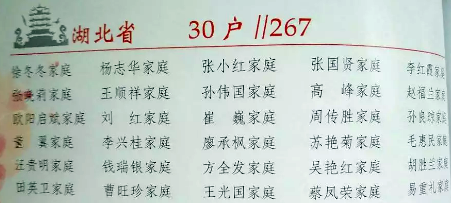 湖北省 30户 //267
徐冬冬家庭 杨志华家庭 张小红家庭 张国贤家庭 李红霞家庭
张晓莉家庭 王顺祥家庭 孙伟国家庭 高峰家庭 赵福兰家庭
欧阳启斌家庭 刘红家庭 崔巍家庭 周传胜家庭 孙良琼家庭
翼家庭 李兴桂家庭 廖承枫家庭 苏艳菊家庭 毛惠民家庭
汪贵明家庭 钱瑞银家庭 方全发家庭 吴艳红家庭 胡胜兰家庭
田英卫家庭 曹旺珍家庭 王光国家庭 蔡凤荣家庭 易重礼家庭